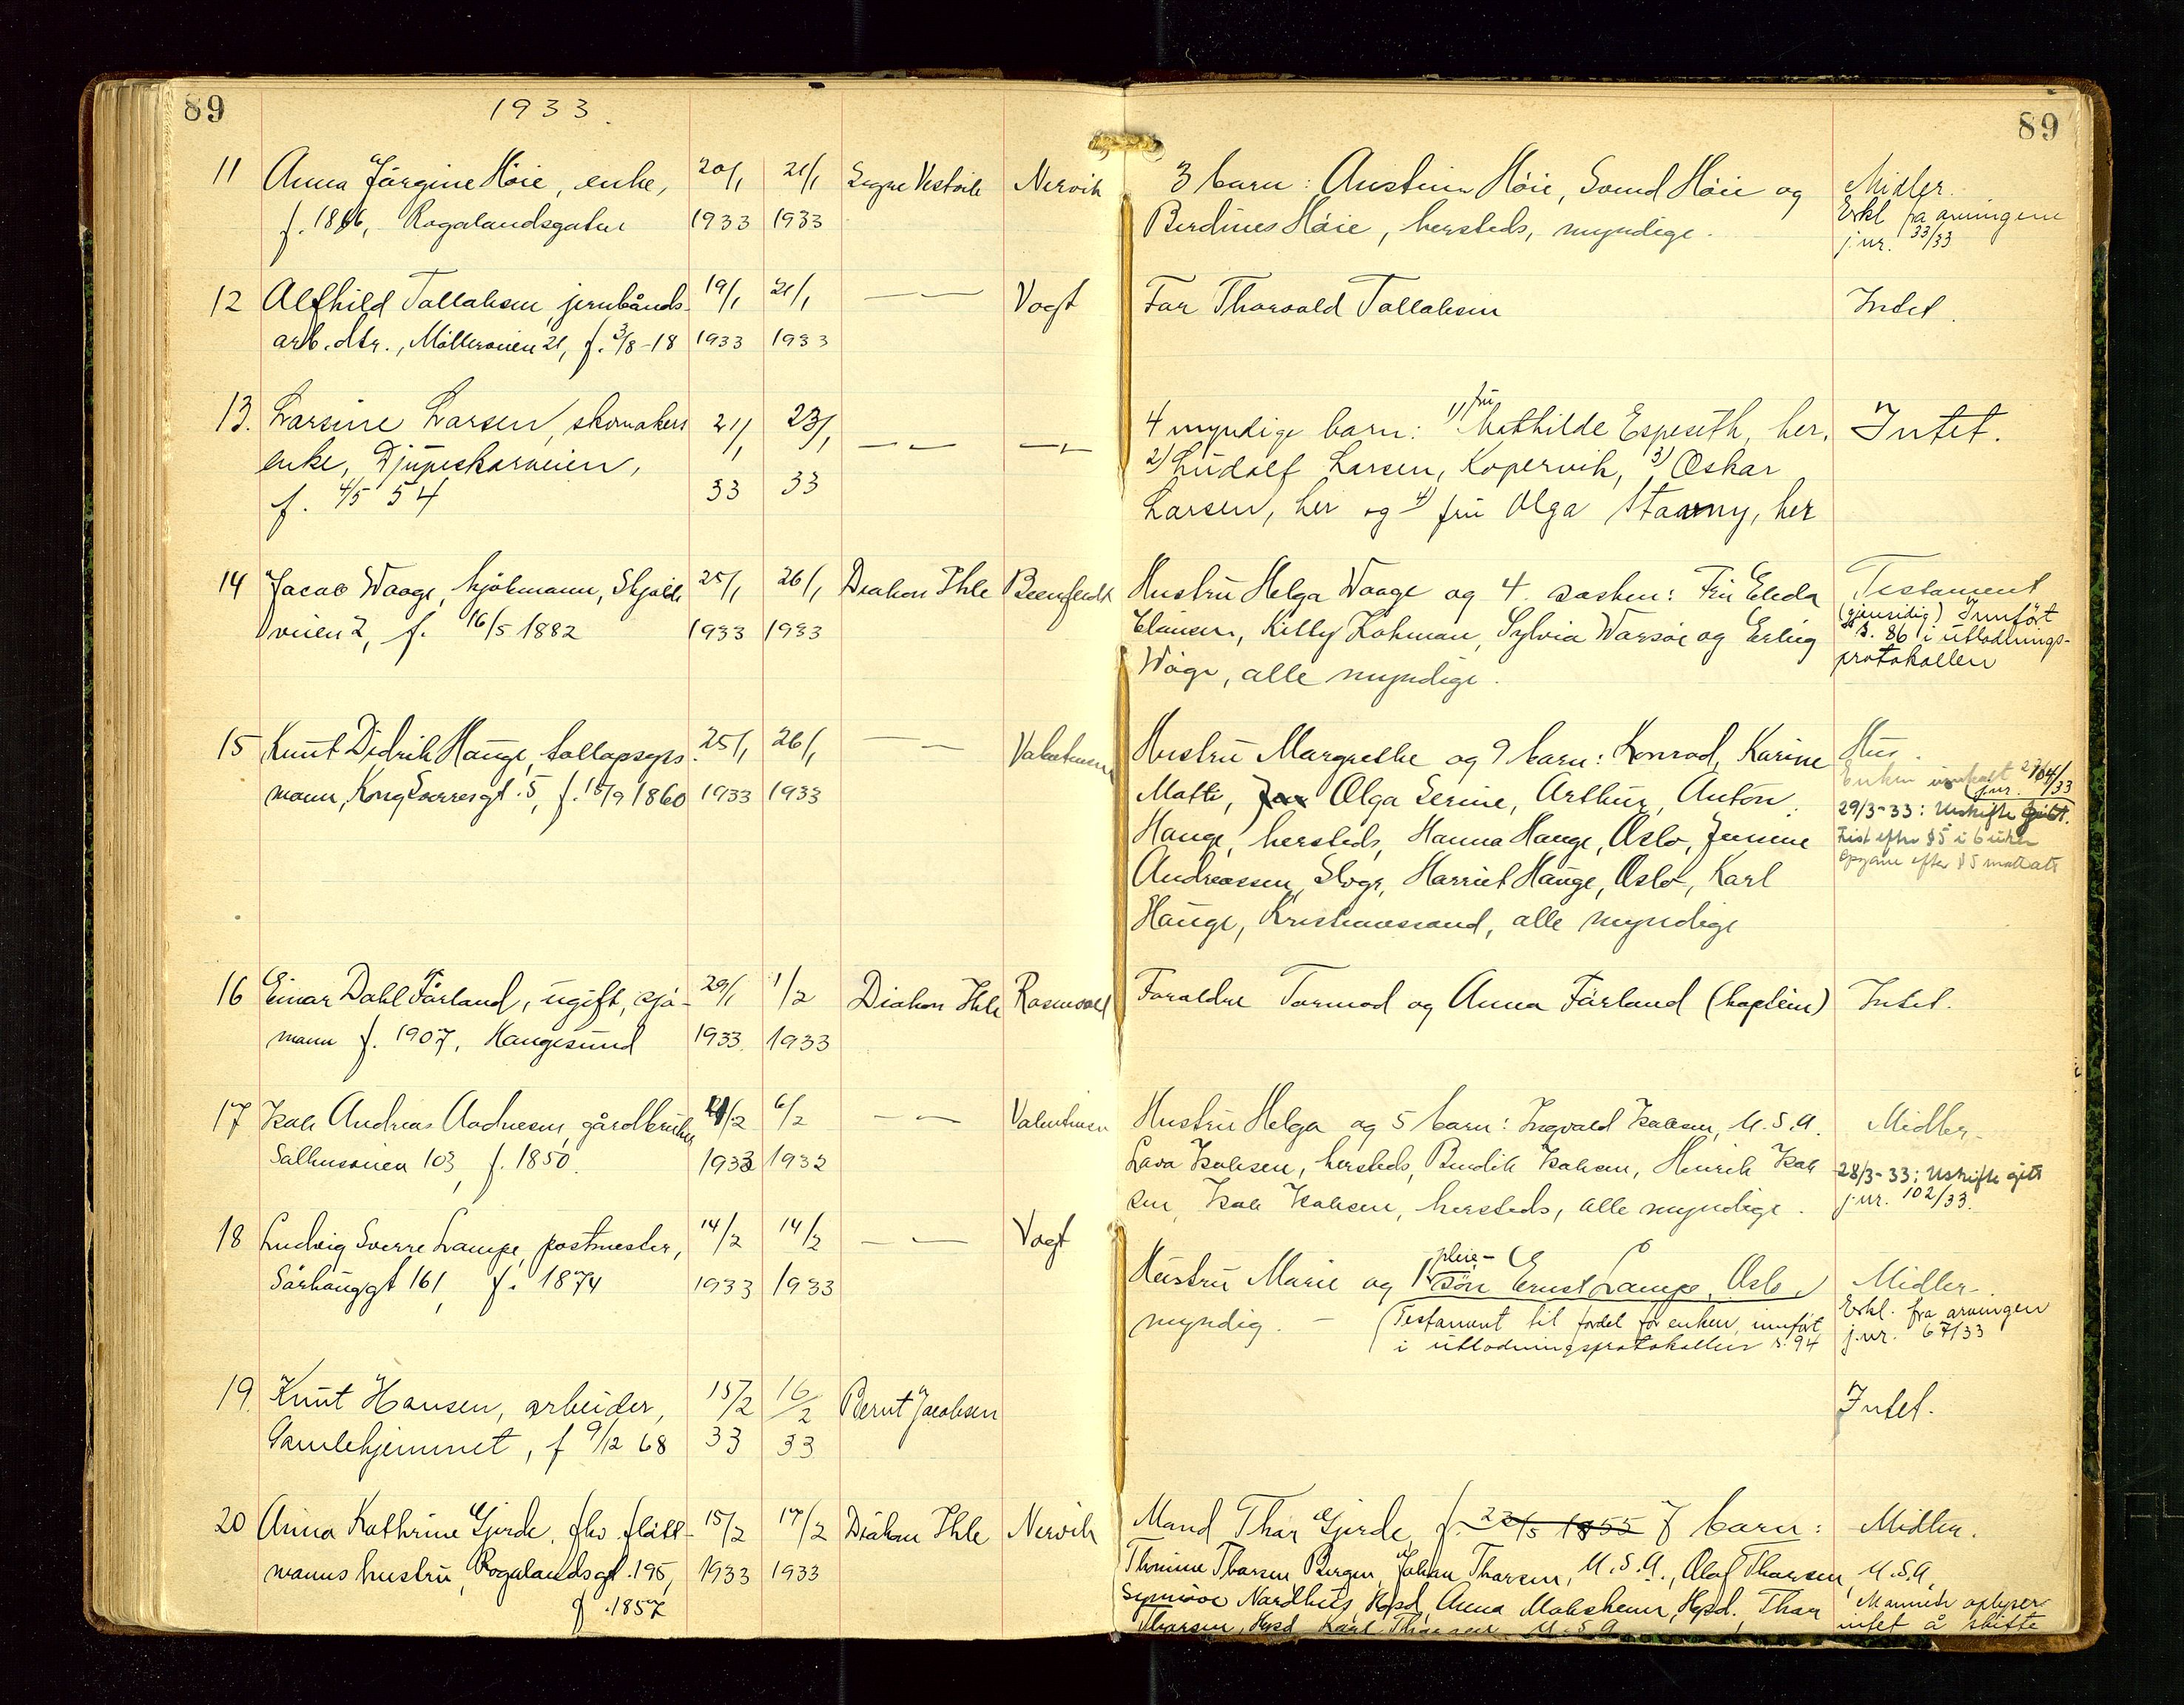 89
1933.
89
11 Anna Jørgine Høie, enke, 20/1 21/1 Nervik 3 barn: Høie, Høie og Midler.
f. 1866, Rogalandsgaten 1933 1933 Høie, hersteds, myndige. Erkl. fra arvingene
j.nr. 33/33
12 Alfhild Tollaksen, jernbånds- 19/1 21/1 — — Vogt Far Thorvald Tollaksen Intet.
arb. dtr., Møllerveien 21, f. 3/8-18 1933 1933
13. Larsine Larsen, skomakers 21/1 23/1 — — — 4 myndige barn: 1) fru Mathilde Espeseth, her, Intet.
enke, Djupeskarveien, 2) Ludolf Larsen, Kopervik, 3) Oskar
f. 4/5 54 33 33 Larsen, her og 4) fru Olga Stamny, her
14 Jacob Waage, kjøkmann, Skjolds 25/1 26/1 Diakon Ihle Hustru Helga Waage og 4. søsken: Fru Testament
veien 2, f. 16/5 1882 1933 1933 Clausen, Sylvia og Erling (gjensidig) Innført
s. 86 i utlodnings-
Wåge, alle myndige. protokollen
15 Knut Didrik Hauge, 25/1 26/1 — — Valentinsen Hustru Margrethe og 9 barn: Konrad, Karine Hus.
mann, Kong Sverresgt. 5, f. 15/9 1860 1933 1933 Olga Serine, Arthur, Anton
29/3-33: Uskifte gitt.
Hauge, hersteds, Hanna Hauge, Oslo, Jensine
Andreassen, Harriet Hauge, Oslo, Karl
Hauge, Kristiansand, alle myndige
16 Einar Dahl Førland, ugift, sjø- 29/1 1/2 Diakon Ihle Rosenvold Foreldre Tormod og Anna Førland (kaptein) Intet.
mann f. 1907, Haugesund 1933 1933
17 Isak Andreas Aadnesen, gårdbruker 6/2 — — Valentinsen Hustru Helga og 5 barn: Ingvald Isaksen, U.S.A. Midler.
Salhusveien 103, f. 1850. 1933 1933 Isaksen, hersteds, Bendik Isaksen, Henrik Isak 28/3-33: Uskifte gitt
sen, Isak Isaksen, hersteds, alle myndige. j.nr. 102/33.
18 Ludvig Sverre Lampe, postmester, 14/2 14/2 — — Vogt Hustru Marie og 1 pleie-søn Ernst Lampe, Oslo, Midler.
Sørhauggt 161, f. 1874 1933 1933 myndig. — (Testament til fordel for enken, innført Erkl. fra arvingen
i utlodningsprotokollen s. 94 j.nr. 67/33
19. Knut Hansen, arbeider, 15/2 16/2 Bernt Jacobsen Intet.
Gamlehjemmet, f 9/12 68 33 33
20 Anna Kathrine Gjerde, fhv. flått- 15/2 17/2 Diakon Ihle Nervik Mand Thor Gjerde, f. 22/5 1855 7 barn: Midler.
manns hustru, Rogalandsgt. 195, 1933 1933 Thomine Thorsen Bergen, Johan Thorsen, U.S.A., Olaf Thorsen, U.S.A,
f. 1857 Synnøve Nordhus, Hgsd, Anna Hgsd. Thor Mannen oplyser
Thorsen, Hgsd Karl Thorsen U.S.A intet å skifte